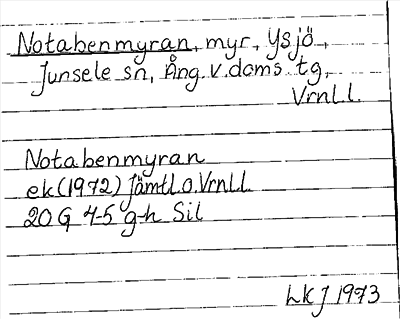 Notabenmyran, myr, Ysjö,
Junsele sn, Ång. v. doms. tg,
Vrnl.l.
Notabenmyran
ek (1972) Jämtl. o. Vrnl.l.
20 G 4-5 g-h Sil
LKJ 1973